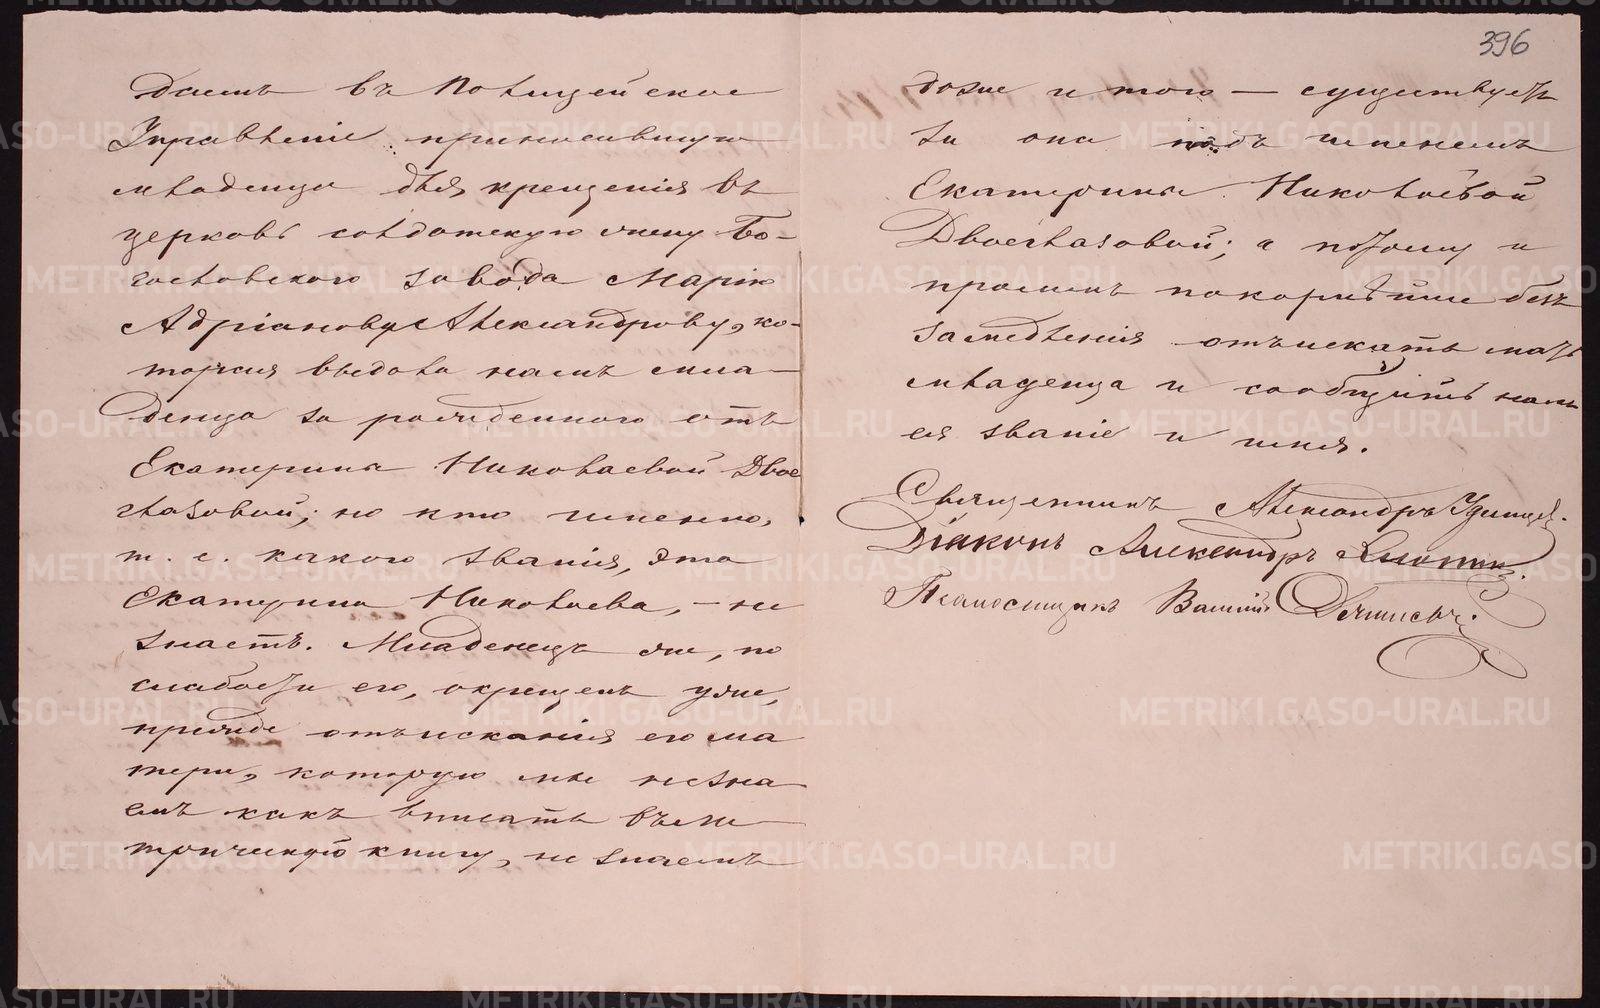 396
даемъ въ Полицейское
Управленіе приносившую
младенца для крещенія въ
церковь солдатскую жену Бо-
гословскаго завода Марію
Адріанову Александрову, ко-
торая выдала намъ мла-
денца за рожденнаго отъ
Екатерины Николаевой Двое
глазовой; но кто именно,
т. е. какого званія, эта
Екатерина Николаева, - не
знаетъ. Младенецъ же, по
слабости его, окрещенъ уже,
прежде отъисканія его ма
тери, которую мы не зна
емъ какъ вписать въ ме
трическую книгу, не знаемъ
даже и того — существуетъ
ли она подъ именемъ
Екатерины Николаевой
Двоеглазовой; а потому и
просимъ покорнѣйше безъ
замедленія отъискать мать
младенца и сообщить намъ
ея званіе и имя.
Священникъ Александръ Удинцев.
Діаконъ Александръ
Псаломщикъ